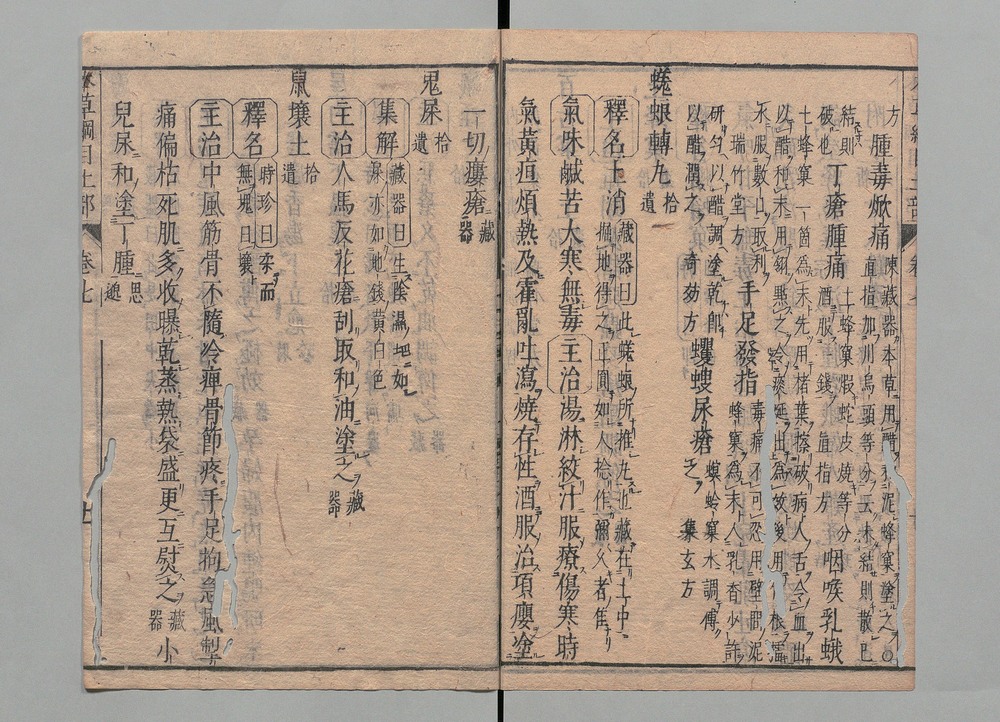 方 腫毒焮痛 陳藏器本草用醋和泥蜂窠塗之○
直指加川烏頭等分云未結則散已
結則
破也 丁瘡腫痛 土蜂窠蛇皮燒等分
酒服一錢 直指方 咽喉乳蛾
土蜂窠一箇為末先用楮葉擦破病人舌令血出
以醋和末用翎點之令痰涎出為效後用
不服數口取利
瑞竹堂方 手足發指 毒痛不可忍用壁間泥
蜂窠為末入乳香少許
研勻以醋調塗乾即
以醋潤之 奇効方 蠼螋尿瘡 螟蛉窠水調傅
之 集玄方
蜣蜋轉丸 拾遺
釋名 土消 藏器曰此蜣蜋所推丸也藏在土中
掘地得之正圓如人捻作彌久者佳
氣味鹹苦大寒無毒 主治湯淋絞汁服療傷寒時
氣黃疸煩熱及霍亂吐瀉燒存性酒服治項癭塗
一切瘻瘡 藏器
鬼屎 拾遺
集解 藏器曰生陰濕地如
屎亦如地錢黃白色
主治 人馬反花瘡刮取和油塗之 藏器
鼠壤土 拾遺
釋名 時珍曰柔而
無塊曰壤
主治 中風筋骨不隨冷痺骨節疼手足拘急風掣
痛偏枯死肌多收曝乾蒸熱袋盛更互熨之 藏器 小
兒尿和塗丁腫 思邈
本草綱目土部 卷七 七